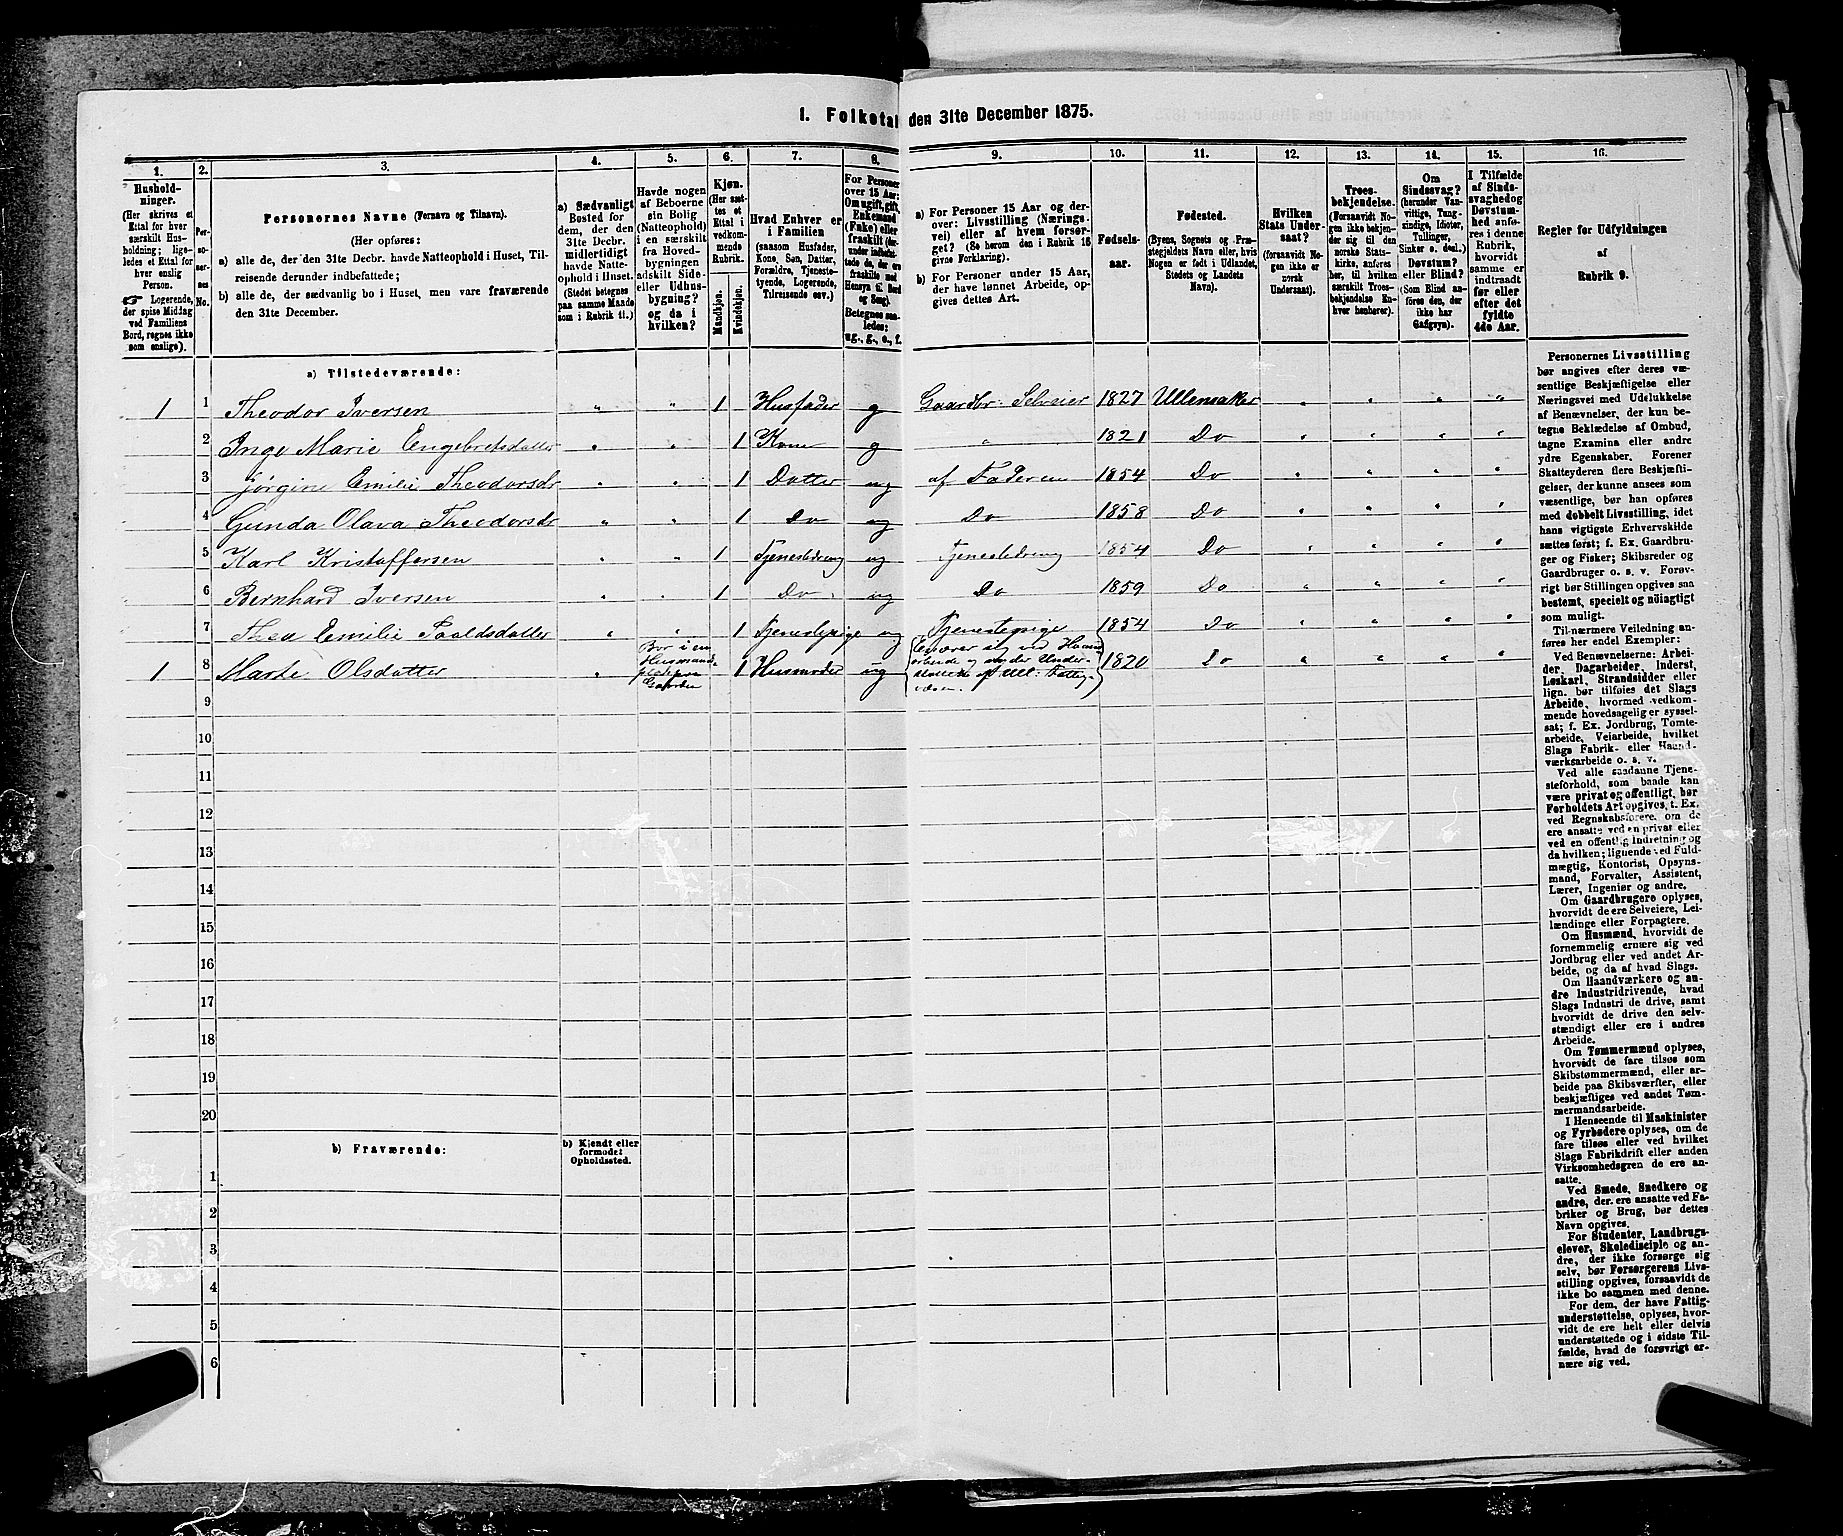 1. Folketal den 31te December 1875.
1. 2. 3. 4. 5. 6. 7. 8. 9. 10. 11. 12. 13. 14. 15. 16.
Husholdninger.
(Her skrives et
Ettal for hver
særskilt Husholdning;
ligeledes
et Ettal for
hver enslig
Person.
☞ Logerende,
der spise Middag
ved Familiens
Bord, regnes ikke
som enslige).
Personernes No.
Personernes Navne (Fornavn og Tilnavn).
(Her opføres:
a) alle de, der den 31te Decbr. havde Natteophold i Huset, Tilreisende derunder indbefattede;
b) alle de, der sædvanlig bo i Huset, men vare fraværende
den 31te December.
a) Sædvanligt
Bosted for
dem, der den
31te Decbr.
midlertidigt
havde Natteophold
i Huset.
(Stedet betegnes
paa samme Maade
som i Rubrik 11.)
Havde nogen
af Beboerne
sin Bolig
(Natteophold)
i en særskilt
fra Hovedbygningen
adskilt Side-
eller Udhusbygning?
og da i
hvilken?
Kjøn.
(Her sættes
et
Ettal i
vedkommende
Rubrik.
Mandkjøn.
Kvindekjøn.
Hvad Enhver er
i Familien
(saasom Husfader,
Kone, Søn, Datter,
Forældre, Tjenestetyende,
Logerende,
Tilreisende osv.)
For Personer
over 15 Aar:
Om ugift, gift,
Enkemand
(Enke) eller
fraskilt (derunder
indbefattede
de, der ere
fraskilte med
Hensyn til Bord
og Seng).
Betegnes saaledes:
ug., g., e., f.
a) For Personer 15 Aar og derover:
Livsstilling (Næringsvei)
eller af hvem forsørget?
(Se herom den i Rubrik 16
givne Forklaring).
b) For Personer under 15 Aar,
der have lønnet Arbeide, opgives
dettes Art.
Fødselsaar.
Fødested.
(Byens, Sognets og Præstegjeldets
Navn eller, hvis
Nogen er født i Udlandet,
Stedets og Landets
Navn).
Hvilken
Stats Undersaat?
(forsaavidt Nogen
ikke er
norsk
Undersaat).
Troesbekjendelse.
(Forsaavidt Nogen
ikke bekjender
sig til den
norske Statskirke,
anføres
her, til hvilken
særskilt Troesbekjendelse
Enhver
henhører).
Om
Sindssvag?
(herunder Vanvittige,
Tungsindige,
Idioter,
Tullinger,
Sinker o. desl.)
Døvstum?
eller Blind?
(Som Blind anføres
den, der
ikke har
Gangsyn).
I Tilfælde
af Sindssvaghed
og
Døvstumhed
anføres
i denne
Rubrik,
hvorvidt
samme er
indtraadt
før eller
efter det
fyldte
4de Aar.
Regler for Udfyldningen
af
Rubrik 9.
a) Tilstedeværende:
1 1 Theodor Iversen " " 1 Husfader g Gaardbr: Selveier 1827 Ullensaker " " " "
2 Inge Marie Engebretsdatter " " 1 Kone g " 1821 Do " " " "
3 Jørgine Emilie Theodorsdr " " 1 Datter ug af Faderen 1854 Do " " " "
4 Gunda Olava Theodorsdr " " 1 Do ug Do 1858 Do " " " "
5 Karl Kristoffersen " " 1 Tjenestedreng ug Tjenestedreng 1854 Do " " " "
6 Bernhard Iversen " " 1 Do ug Do 1859 Do " " " "
7 Thea Emilie Paalsdatter " " 1 Tjenestepige ug Tjenestepige 1854 Do " " " "
1 8 Marte Olsdatter " Bor i en Husmandsplads paa Gaarden 1 Husmoder ug Ernærer sig ved Haandarbeide og nyder Understøttelse af Ull: Fattigvæsen. 1820 Do " " " "
9
10
11
12
13
14
15
16
17
18
19
20
b) Fraværende:
b) Kjendt eller
formodet
Opholdssted.
1
2
3
4
5
6
Personernes Livsstilling
bør angives efter deres væsentlige
Beskjæftigelse eller
Næringsvei med Udelukkelse
af Benævnelser, der kun betegne
Beklædelse af Ombud,
tagne Examina eller andre
ydre Egenskaber. Forener
Skatteyderen flere Beskjæftigelser,
der kunne ansees som
væsentlige, bør han opføres
med dobbelt Livsstilling, idet
hans vigtigste Erhvervskilde
sættes først; f. Ex. Gaardbruger
og Fisker; Skibsreder og
Gaardbruger o. s. v. Forøvrigt
bør Stillingen opgives saa
bestemt, specielt og nöiagtigt
som muligt.
Til nærmere Veiledning anføres
her endel Exempler:
Ved Benævnelserne: Arbeider,
Dagarbeider, Inderst,
Løskarl, Strandsidder eller
lign. bør tilføies det Slags
Arbeide, hvormed vedkommende
hovedsagelig er sysselsat;
f. Ex. Jordbrug, Tømtearbeide,
Veiarbeide, hvilket
Slags Fabrik- eller Haandværksarbeide
o. s. v.
Ved alle saadanne Tjenesteforhold,
som baade kan
være privat og offentligt, bør
Forholdets Art opgives, t. Ex.
ved Regnskabsførere, om de
ere ansatte ved en privat eller
ved en offentlig Indretning og
da hvilken; lignende ved Fuldmægtig,
Kontorist, Opsynsmand,
Forvalter, Assistent,
Lærer, Ingeniør og andre.
Om Gaardbrugere oplyses,
hvorvidt de ere Selveiere, Leilændinge
eller Forpagtere.
Om Husmænd, hvorvidt de
fornemmelig ernære sig ved
Jordbrug eller ved andet Arbeide,
og da af hvad Slags.
Om Haandværkere og andre
Industridrivende, hvad
Slags Industri de drive, samt
hvorvidt de drive den selvstændigt
eller ere i andres
Arbeide.
Om Tømmermænd oplyses,
hvorvidt de fare tilsøs som
Skibstømmermænd, eller arbeide
paa Skibsværfter, eller
beskjæftiges ved andet Tømmermandsarbeide.
I Henseende til Maskinister
og Fyrbødere oplyses, om de
fare tilsøs eller ved hvilket
Slags Fabrikdrift eller anden
Virksomhedsgren de ere ansatte.
Ved Smede, Snedkere og
andre, der ere ansatte ved Fabriker
og Brug, bør dettes
Navn opgives.
For Studenter, Landbrugselever,
Skoledisciple og andre,
der ikke forsørge sig
selv, bør Forsørgerens Livsstilling
opgives, forsaavidt de
ikke bo sammen med denne.
For dem, der have Fattigunderstøttelse,
oplyses, hvorvidt
de ere helt eller delvis
understøttede og i sidste Tilfælde,
hvad de forøvrigt ernære
sig ved.